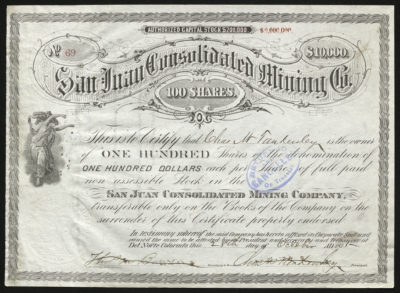 AUTHORIZED CAPITAL STOCK $200,000. $2,000,000.
No 69 $10,000.
San Juan Consolidated Mining Co.
100 SHARES.
This is to Certify that Chas. H. is the owner
of ONE HUNDRED Shares of the denomination of
ONE HUNDRED DOLLARS each par value of full paid
non assessable Stock in the
SAN JUAN CONSOLIDATED MINING COMPANY,
transferable only on the Books of the Company on the
surrender of this Certificate properly endorsed
In Testimony Whereof the said Company has hereto affixed its Corporate Seal and
caused the same to be attested by its President and Secretary at
Del Norte Colorado, this day of October